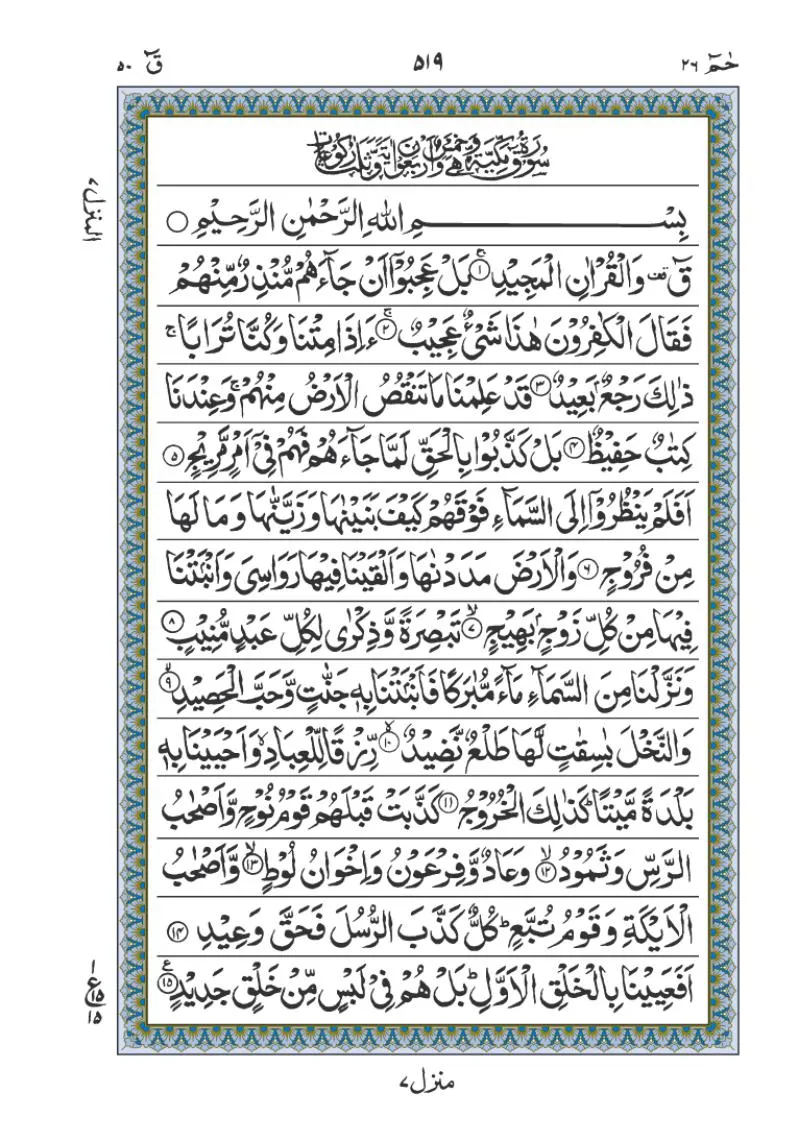 حٰمٓ ٢٦ ٥١٩ قٓ ٥٠
سُوْرَةُ قٓ مَكِّيَّةٌ وَّهِيَ خَمْسٌ وَّاَرْبَعُوْنَ اٰيَةً وَّثَلٰثُ رُكُوْعَاتٍ
بِسْمِ اللهِ الرَّحْمٰنِ الرَّحِيْمِ ○
قٓ ۚ قف وَالْقُرْاٰنِ الْمَجِيْدِ ۚ﴿١﴾ بَلْ عَجِبُوْٓا اَنْ جَآءَهُمْ مُّنْذِرٌ مِّنْهُمْ
فَقَالَ الْكٰفِرُوْنَ هٰذَا شَيْءٌ عَجِيْبٌ ۚ﴿٢﴾ ءَاِذَا مِتْنَا وَكُنَّا تُرَابًا ۚ
ذٰلِكَ رَجْعٌۢ بَعِيْدٌ ﴿٣﴾ قَدْ عَلِمْنَا مَا تَنْقُصُ الْاَرْضُ مِنْهُمْ ۚ وَعِنْدَنَا
كِتٰبٌ حَفِيْظٌ ﴿٤﴾ بَلْ كَذَّبُوْا بِالْحَقِّ لَمَّا جَآءَهُمْ فَهُمْ فِيْٓ اَمْرٍ مَّرِيْجٍ ﴿٥﴾
اَفَلَمْ يَنْظُرُوْٓا اِلَى السَّمَآءِ فَوْقَهُمْ كَيْفَ بَنَيْنٰهَا وَزَيَّنّٰهَا وَمَا لَهَا
مِنْ فُرُوْجٍ ﴿٦﴾ وَالْاَرْضَ مَدَدْنٰهَا وَاَلْقَيْنَا فِيْهَا رَوَاسِيَ وَاَنْۢبَتْنَا
فِيْهَا مِنْ كُلِّ زَوْجٍۢ بَهِيْجٍ ۙ﴿٧﴾ تَبْصِرَةً وَّذِكْرٰى لِكُلِّ عَبْدٍ مُّنِيْبٍ ﴿٨﴾
وَنَزَّلْنَا مِنَ السَّمَآءِ مَآءً مُّبٰرَكًا فَاَنْۢبَتْنَا بِهٖ جَنّٰتٍ وَّحَبَّ الْحَصِيْدِ ۙ﴿٩﴾
وَالنَّخْلَ بٰسِقٰتٍ لَّهَا طَلْعٌ نَّضِيْدٌ ۙ﴿١٠﴾ رِّزْقًا لِّلْعِبَادِ ۙ وَاَحْيَيْنَا بِهٖ
بَلْدَةً مَّيْتًا ؕ كَذٰلِكَ الْخُرُوْجُ ﴿١١﴾ كَذَّبَتْ قَبْلَهُمْ قَوْمُ نُوْحٍ وَّاَصْحٰبُ
الرَّسِّ وَثَمُوْدُ ۙ﴿١٢﴾ وَعَادٌ وَّفِرْعَوْنُ وَاِخْوَانُ لُوْطٍ ۙ﴿١٣﴾ وَّاَصْحٰبُ
الْاَيْكَةِ وَقَوْمُ تُبَّعٍ ؕ كُلٌّ كَذَّبَ الرُّسُلَ فَحَقَّ وَعِيْدِ ﴿١٤﴾
اَفَعَيِيْنَا بِالْخَلْقِ الْاَوَّلِ ؕ بَلْ هُمْ فِيْ لَبْسٍ مِّنْ خَلْقٍ جَدِيْدٍ ﴿١٥﴾
المنزل ٧
١
ع
١٥
١٥
منزل ٧